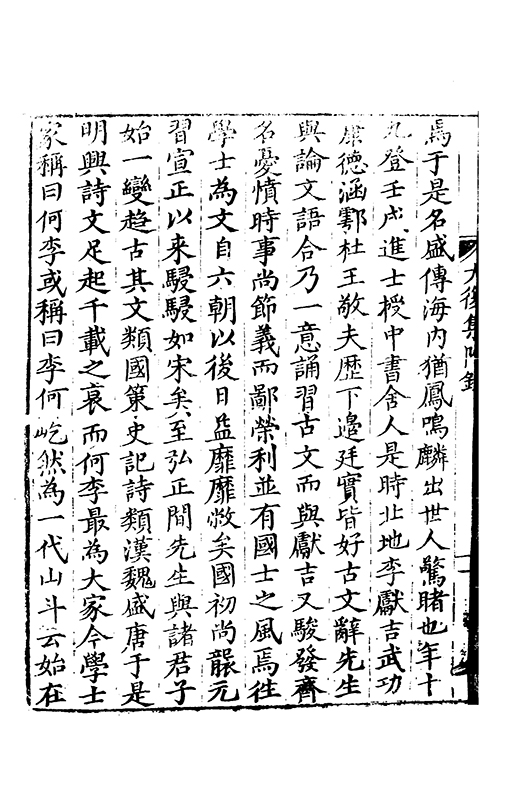 焉于是名盛傳海内猶鳳鳴麟出世人驚睹也年十
九登壬戌進士授中書舍人是時北地李獻吉武功
康德涵鄠杜王敬夫歷下邊廷實皆好古文辭先生
與論文語合乃一意誦習古文而與獻吉又駿發齊
名憂憤時事尚節義而鄙榮利並有國士之風焉往
學士為文自六朝以後日益靡靡敝矣國初尚襲元
習宣正以来駸駸如宋矣至弘正間先生與諸君子
始一變趋古其文類國策史記詩類漢魏盛唐于是
明興詩文足起千載之衰而何李最為大家今學士
家稱曰何李或稱曰李何屹然為一代山斗云始在